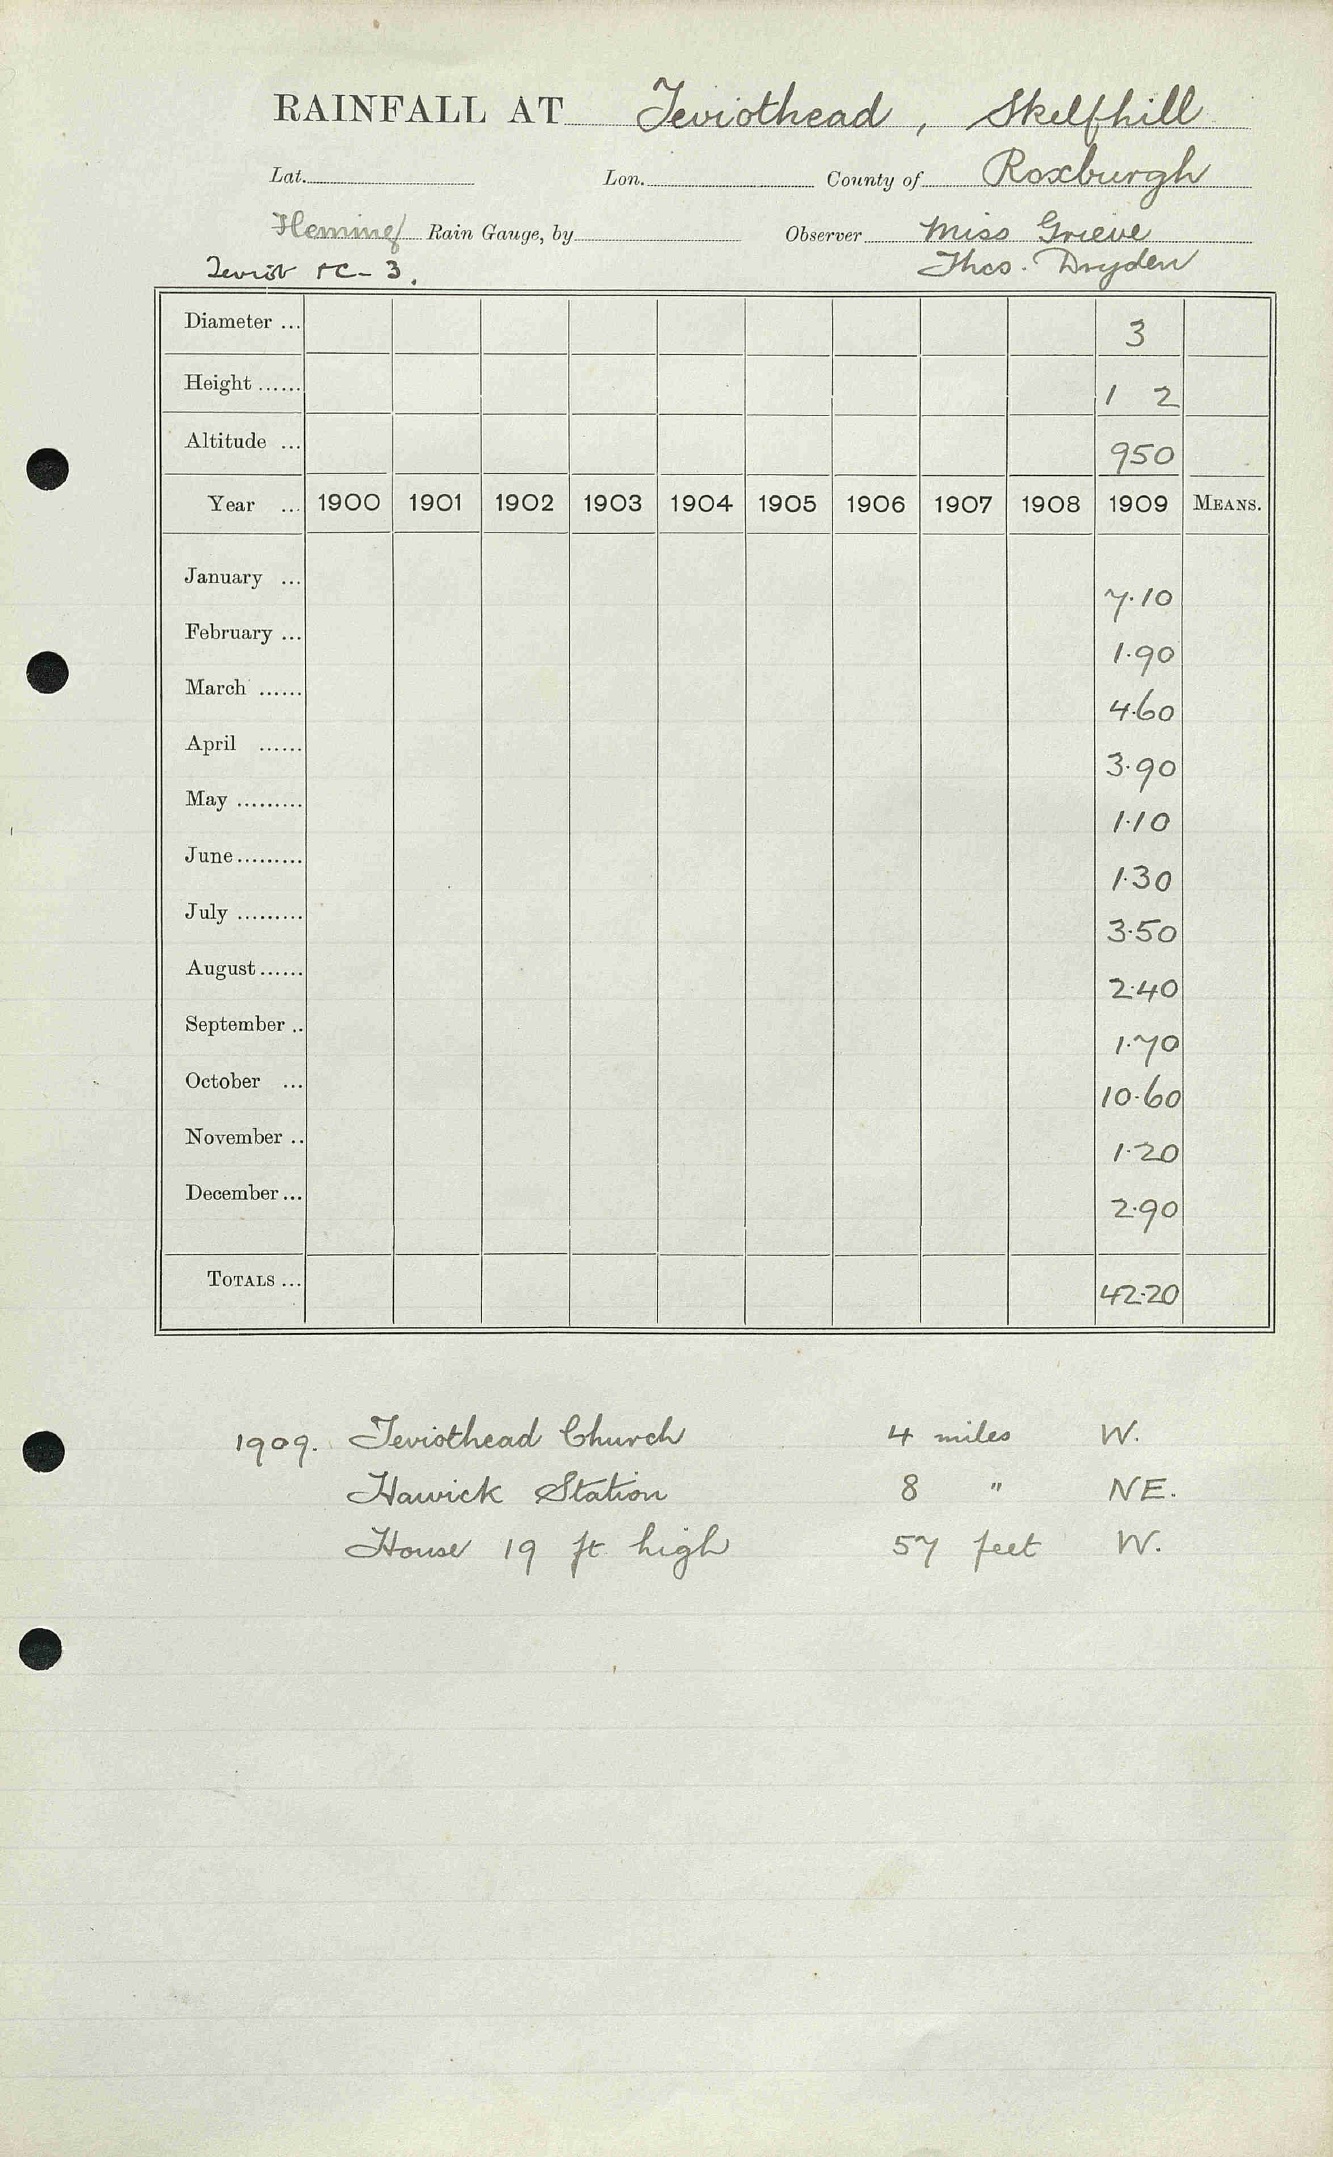 RAINFALL AT Teviothead, Skelfhill
Lat. Lon. County of Roxburgh
Fleming Rain Gauge, by Observer Miss Grieve
Teviot 3. Thos. Dryden
Diameter ... 3
Height ...... 1 2
Altitude ... 950
Year ... 1900 1901 1902 1903 1904 1905 1906 1907 1908 1909 MEANS.
January ... 7.10
February ... 1.90
March ...... 4.60
April ...... 3.90
May ......... 1.10
June......... 1.30
July ......... 3.50
August...... 2.40
September .. 1.70
October ... 10.60
November .. 1.20
December... 2.90
TOTALS ... 42.20
1909. Teviothead Church 4 miles W.
Hawick Station 8 " NE.
House 19 ft high 57 feet W.